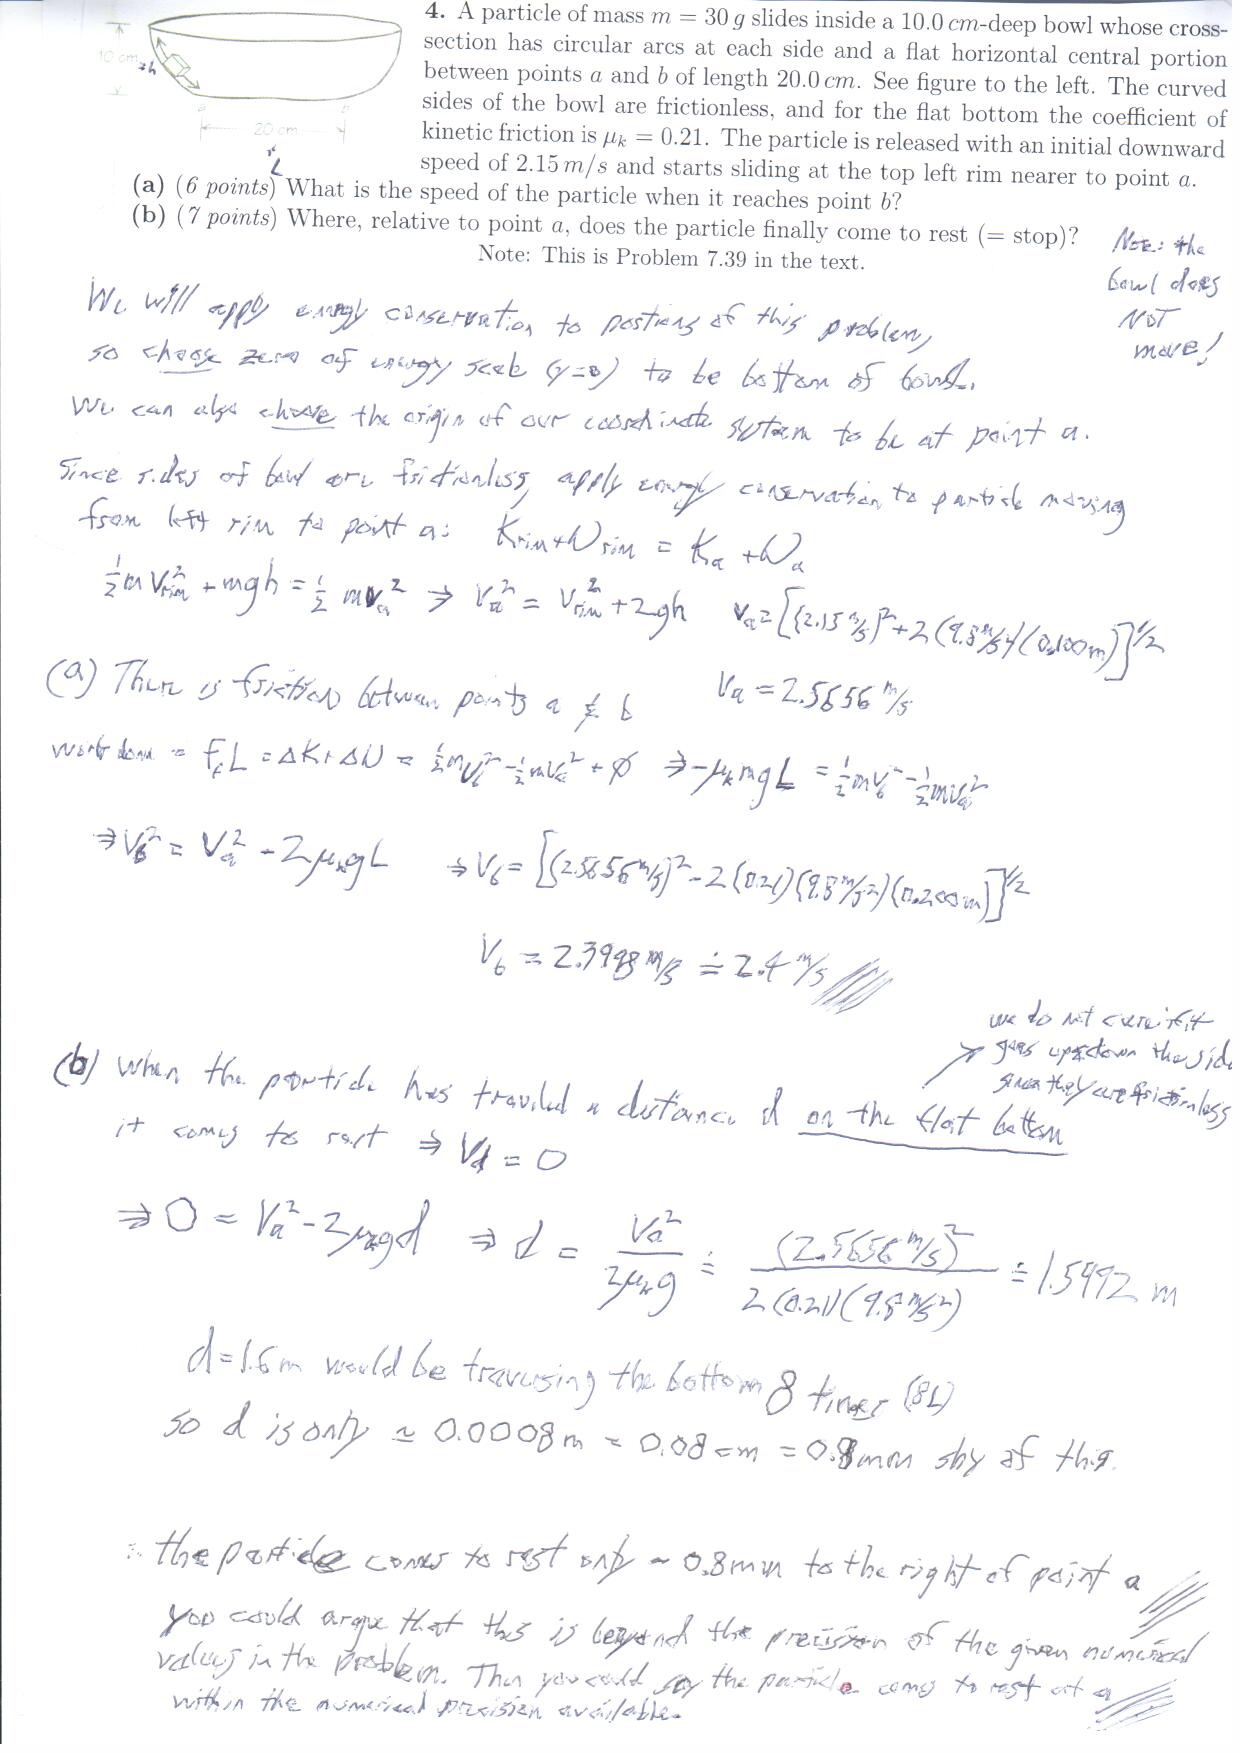 4. A particle of mass m = 30 g slides inside a 10.0 cm-deep bowl whose cross-
section has circular arcs at each side and a flat horizontal central portion
between points a and b of length 20.0 cm. See figure to the left. The curved
sides of the bowl are frictionless, and for the flat bottom the coefficient of
kinetic friction is μk = 0.21. The particle is released with an initial downward
speed of 2.15 m/s and starts sliding at the top left rim nearer to point a.
10 cm
=h
a
b
20 cm
L
(a) (6 points) What is the speed of the particle when it reaches point b?
(b) (7 points) Where, relative to point a, does the particle finally come to rest (= stop)?
Note: This is Problem 7.39 in the text.
Note: the
bowl does
NOT
move!
We will apply energy conservation to portions of this problem,
so choose zero of energy scale (y=0) to be bottom of bowl.
We can also choose the origin of our coordinate system to be at point a.
Since sides of bowl are frictionless, apply energy conservation to particle moving
from left rim to point a: Krim + Urim = Ka + Ua
½ m Vrim² + mgh = ½ mva² ⇒ Va² = Vrim² + 2gh Va = [(2.15 m/s)² + 2(9.8 m/s²)(0.100m)]^1/2
Va = 2.5656 m/s
(a) There is friction between points a & b
work done = ffL = ΔK + ΔU = ½mvb² - ½mva² + 0 ⇒ -μkmgL = ½mvb² - ½mva²
⇒ Vb² = Va² - 2μkgL ⇒ Vb = [(2.5656 m/s)² - 2(0.21)(9.8 m/s²)(0.200m)]^1/2
Vb = 2.3998 m/s ≐ 2.4 m/s
we do not care if it
goes up & down the side
since they are frictionless
(b) When the particle has traveled a distance d on the flat bottom
it comes to rest ⇒ Vd = 0
⇒ 0 = Va² - 2μkgd ⇒ d = Va² / 2μkg ≐ (2.5656 m/s)² / 2(0.21)(9.8 m/s²) ≐ 1.5992 m
d = 1.6m would be traversing the bottom 8 times (8L)
so d is only ≈ 0.0008m = 0.08cm = 0.8mm shy of this.
∴ the particle comes to rest only ~ 0.8mm to the right of point a
You could argue that this is beyond the precision of the given numerical
values in the problem. Then you could say the particle comes to rest at a
within the numerical precision available.